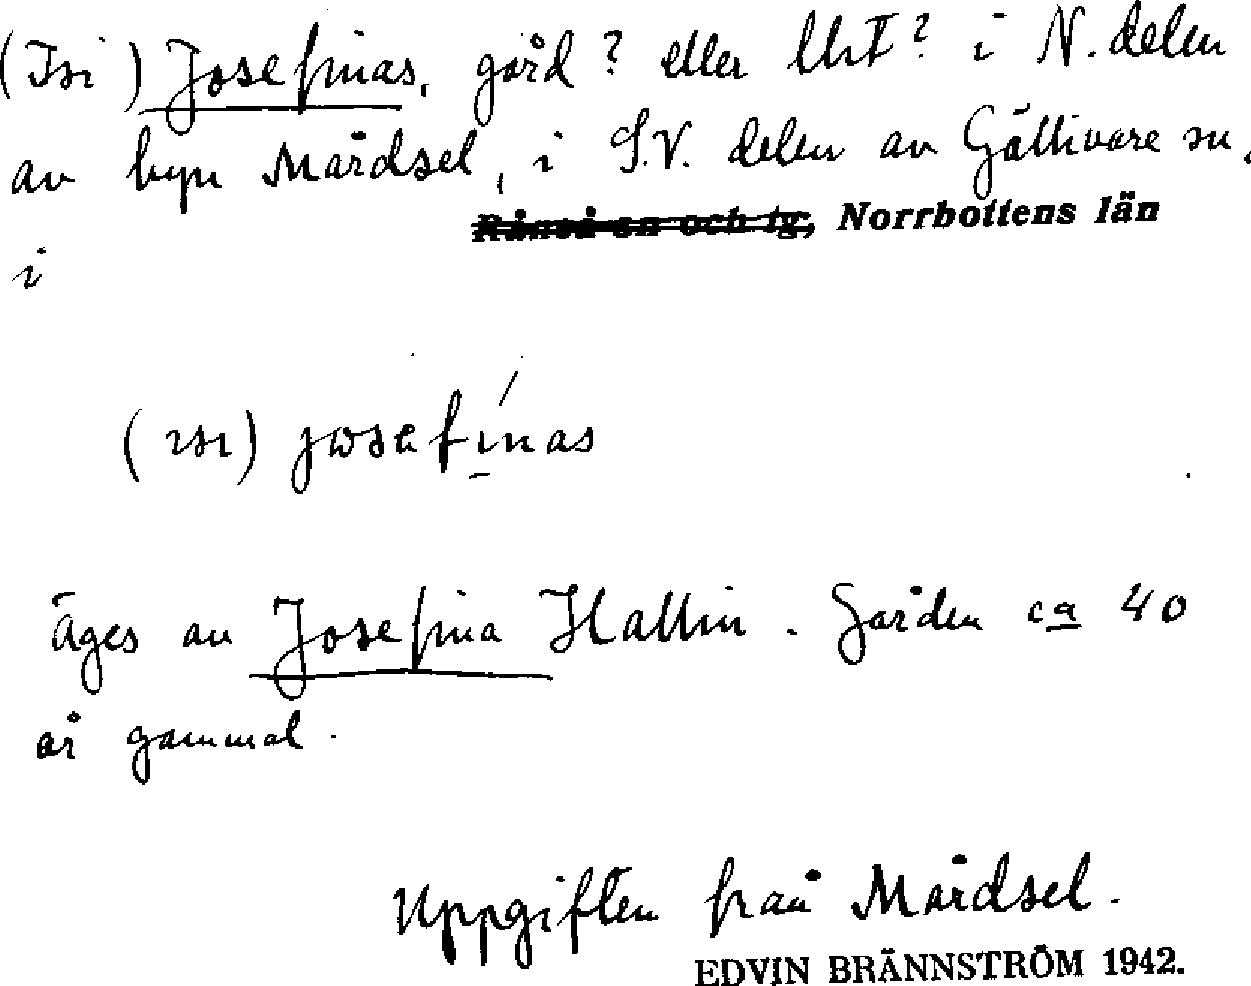 (Isi) Josefinas, gård? eller lht? i N. delen
av byn Mårdsel, i S.V. delen av Gällivare sn,
Råneå sn och tg, Norrbottens län
i
(ısı) josefinas
äges av Josefina Hallin. Gården ca 40
år gammal.
Uppgiften från Mårdsel.
EDVIN BRÄNNSTRÖM 1942.